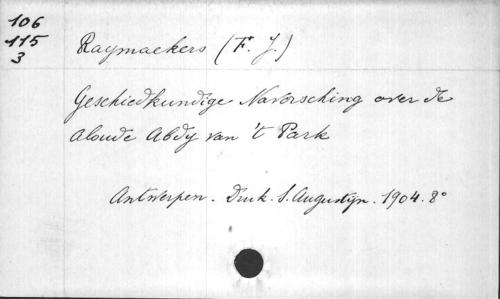 106
115
3
Raymaekers (F. J.)
Geschiedkundige Navorsching over de
aloude Abdy van 't Park
Antwerpen. Druk. S. Augustyn. 1904. 8°